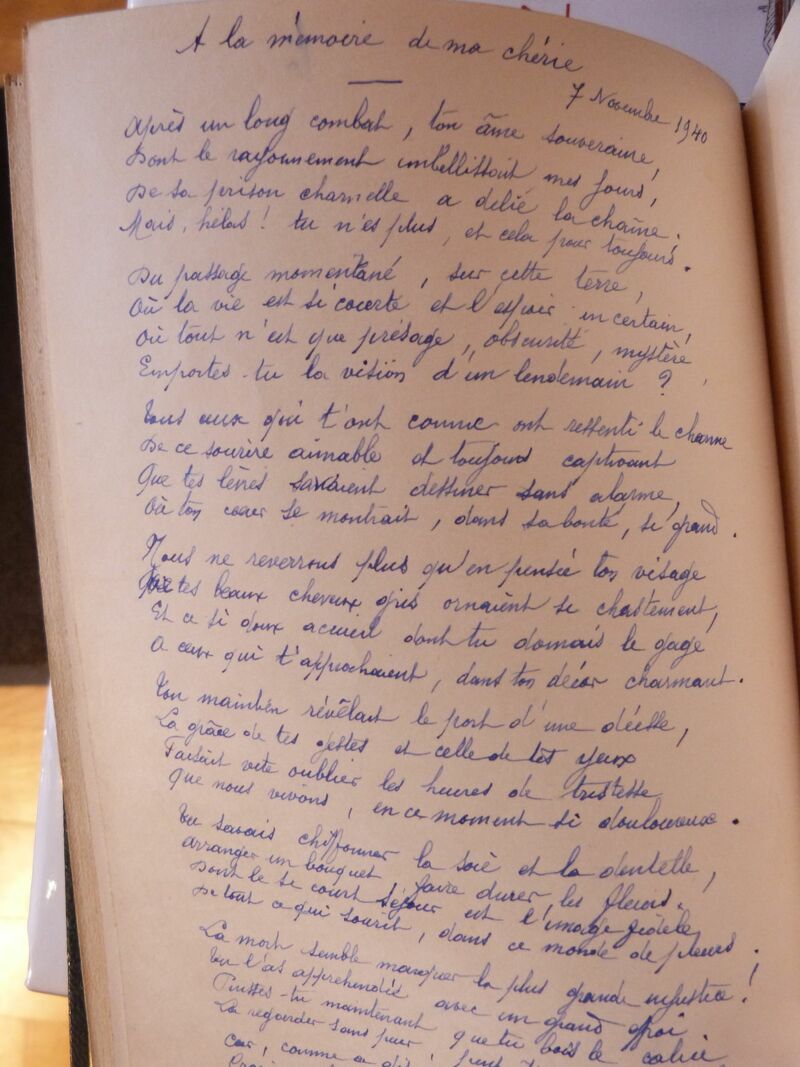 A la mémoire de ma chérie
7 Novembre 1940
Après un long combat, ton âme souveraine,
Dont le rayonnement embellissait mes jours,
De sa prison charnelle a délié la chaîne.
Mais, hélas! tu n'es plus, et cela pour toujours.
Du passage momentané, sur cette terre,
Où la vie est si courte et l'espoir incertain,
Où tout n'est que présage, obscurité, mystère,
Emportes-tu la vision d'un lendemain ?
Tous ceux qui t'ont connue ont ressenti le charme
De ce sourire aimable et toujours captivant
Que tes lèvres savaient dessiner sans alarme,
Où ton cœur se montrait, dans sa bonté, si grand.
Nous ne reverrons plus qu'en pensée ton visage
Que tes beaux cheveux gris ornaient si chastement,
Et ce si doux accueil dont tu donnais le gage
A ceux qui t'approchaient, dans ton décor charmant.
Ton maintien révélait le port d'une déesse,
La grâce de tes gestes et celle de tes yeux
Faisait vite oublier les heures de tristesse
Que nous vivons, en ce moment si douloureux.
Tu savais chiffonner la soie et la dentelle,
Arranger un bouquet, faire durer les fleurs.
Dont le si court séjour est l'image fidèle
De tout ce qui sourit, dans ce monde de pleurs.
La mort semble marquer la plus grande injustice!
Tu l'as appréhendée avec un grand effroi.
Puisses-tu maintenant que tu bois le calice
La regarder sans peur
Car, comme a dit